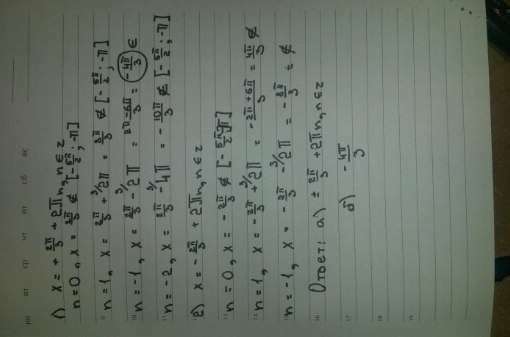 1) x = + 2π/3 + 2πn, n ∈ z
n=0, x = 2π/3 ∉ [-5π/2; -π]
n=1, x = 2π/3 + 2π = 8π/3 ∉ [-5π/2; -π]
n=-1, x = 2π/3 - 2π = 2π-6π/3 = -4π/3 ∈
n=-2, x = 2π/3 - 4π = -10π/3 ∉ [-5π/2; -π]
2) x = -2π/3 + 2πn, n ∈ z
n=0, x = -2π/3 ∉ [-5π/2; -π]
n=1, x = -2π/3 + 2π = -2π+6π/3 = 4π/3 ∉
n=-1, x = -2π/3 - 2π = -8π/3 = ∉
Ответ: а) ± 2π/3 + 2πn, n ∈ z
б) -4π/3